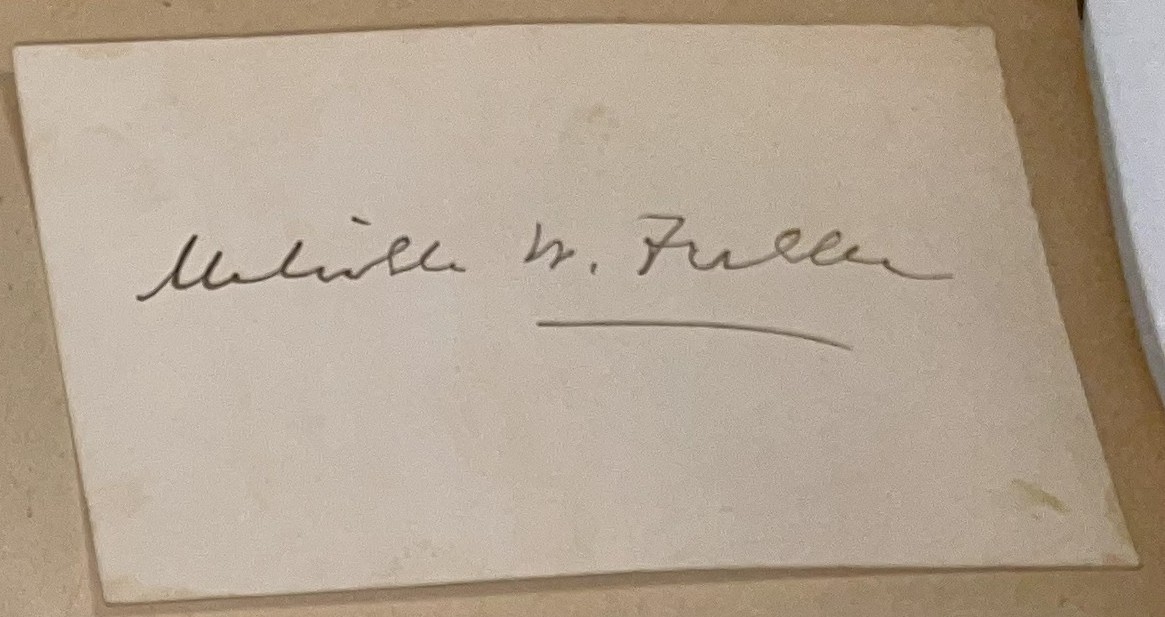 Melville W. Fuller